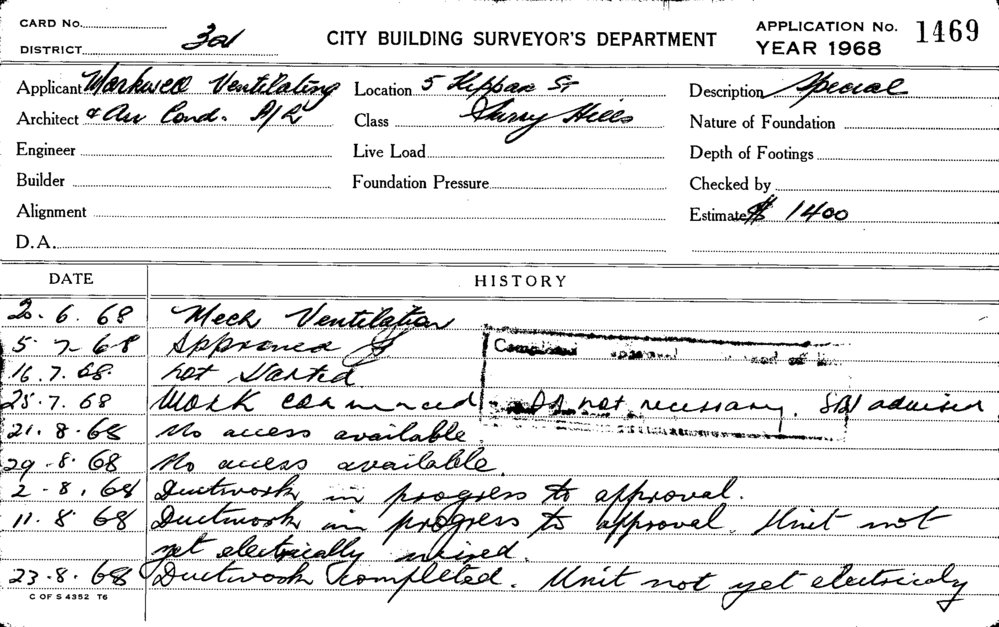 CARD No.
DISTRICT 3d
CITY BUILDING SURVEYOR'S DEPARTMENT
APPLICATION No. 1469
YEAR 1968
Applicant Ventilating
Location 5 Kippax St
Description Special
Architect & Air Cond. P/L
Class Surry Hills
Nature of Foundation
Engineer
Live Load
Depth of Footings
Builder
Foundation Pressure
Checked by
Alignment
Estimate $ 1400
D.A.
DATE HISTORY
20.6.68 Mech Ventilation
5-7-68 Approved
Completed
16.7.68 not started
25.7.68 Work commenced not necessary. advised
21.8.68 No access available
29.8.68 No access available.
2-8.68 Ductwork in progress to approval.
11.8.68 Ductwork in progress to approval. Unit not
yet electrically wired.
23.8.68 Ductwork completed. Unit not yet electricaly
C OF S 4352 T6